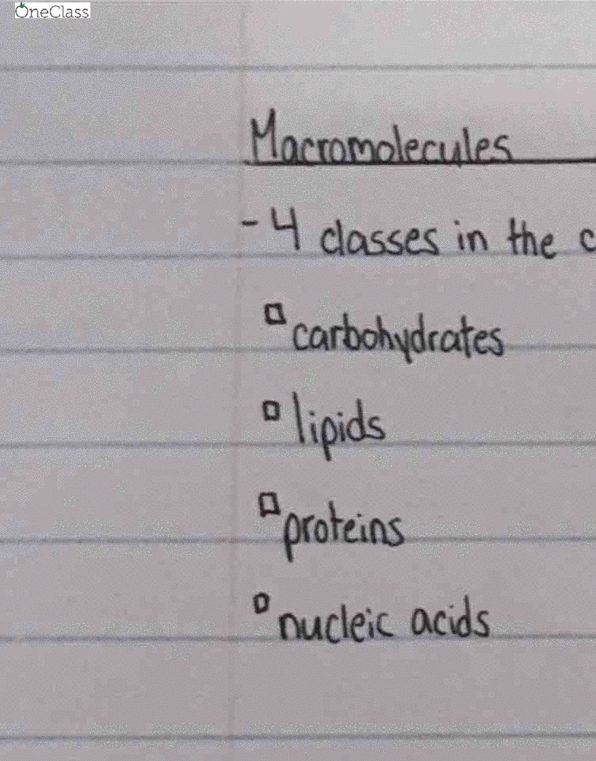 OneClass
Macromolecules
- 4 classes in the c
carbohydrates
lipids
proteins
nucleic acids